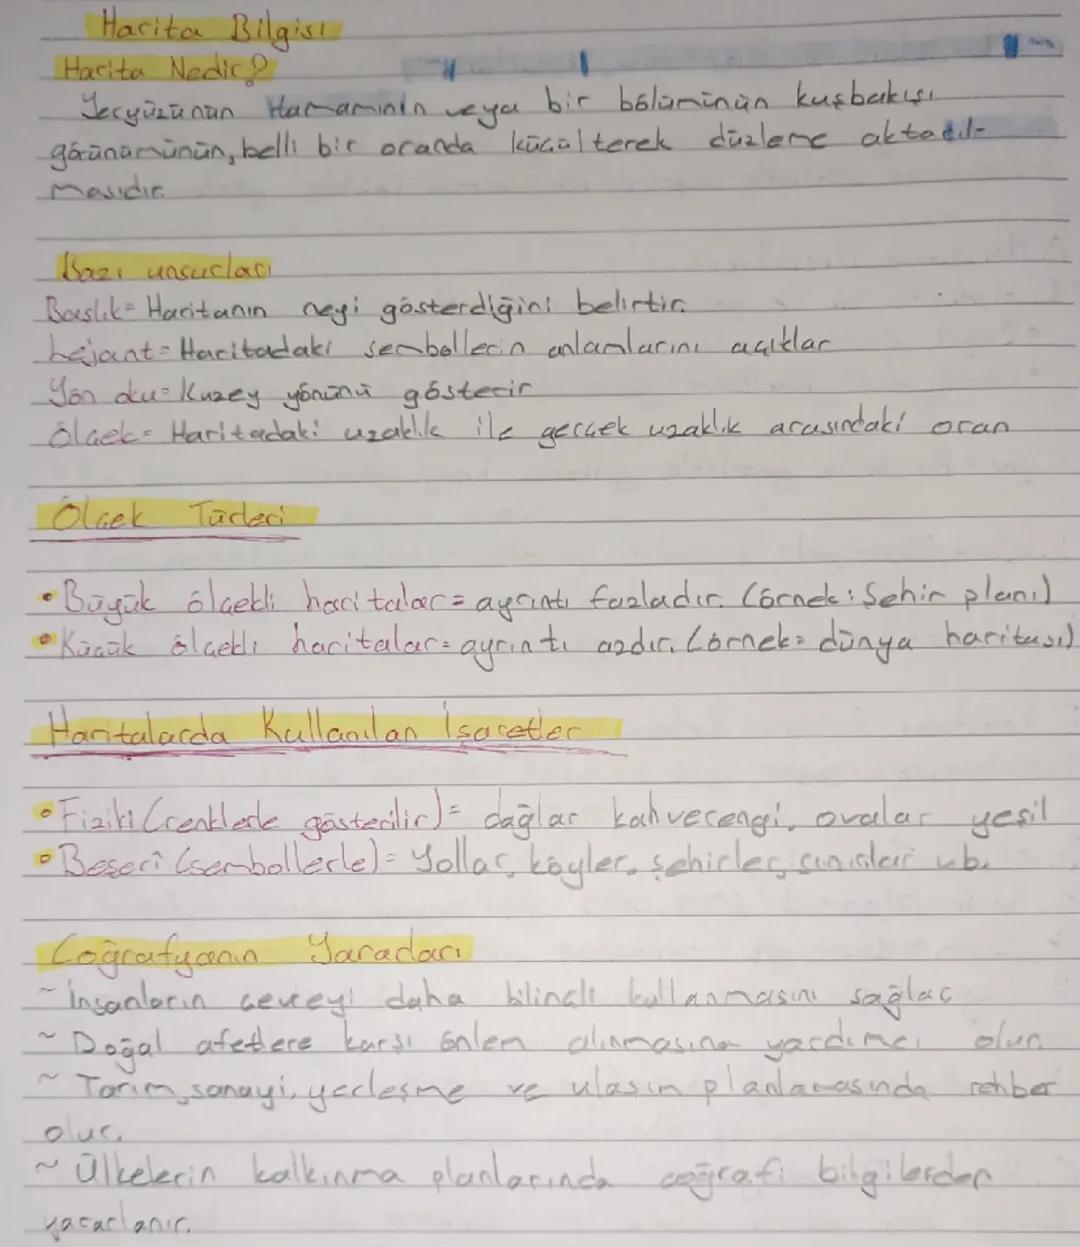 Harita Bilgisi
Harita Nedir?
Yeryüzünün Hamamının veya bir bölümünün kuşbakışı
görünümünün, belli bir oranda küçülterek düzleme aktarıl-
masıdır.
Bazı unsurları
Başlık= Haritanın neyi gösterdiğini belirtir.
Lejant= Haritadaki sembollerin anlamlarını açıklar
Yön oku= Kuzey yönünü gösterir
Ölçek= Haritadaki uzaklık ile gerçek uzaklık arasındaki oran
Ölçek Türleri
• Büyük ölçekli haritalar= ayrıntı fazladır. (örnek: Şehir planı)
• Küçük ölçekli haritalar= ayrıntı azdır. (örnek= dünya haritası)
Haritalarda Kullanılan İşaretler
• Fiziki (renklerle gösterilir)= dağlar kahverengi, ovalar yeşil
• Beşeri (sembollerle)= Yollar, köyler, şehirler, sınırlar vb.
Coğrafyanın Yararları
~ İnsanların çevreyi daha bilinçli kullanmasını sağlar
~ Doğal afetlere karşı önlem alınmasına yardımcı olur.
~ Tarım, sanayi, yerleşme ve ulaşım planlamasında rehber
olur.
~ Ülkelerin kalkınma planlarında coğrafi bilgilerden
yararlanır.